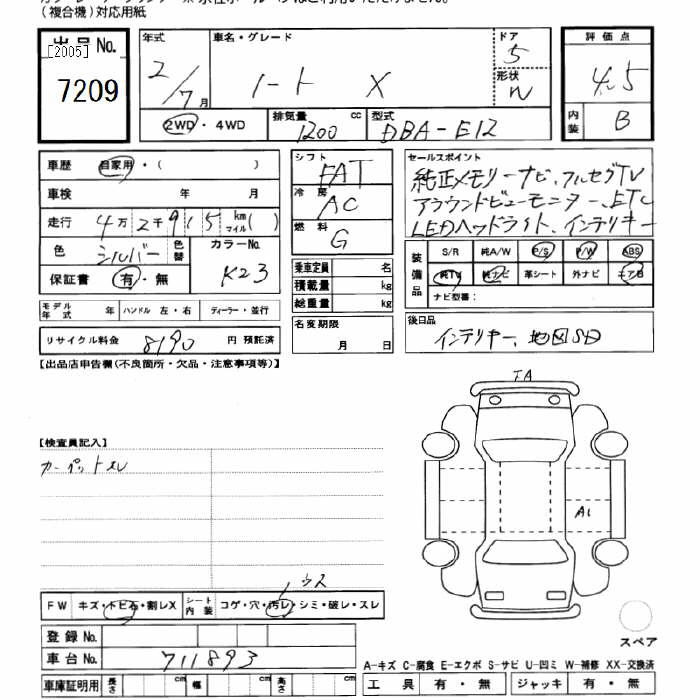 (複合機)対応用紙
出品 No.
[2005]
7209
年式
2/7月
車名・グレード
ノート X
ドア
5
形状
W
評価点
4.5
内装
B
2WD・4WD
排気量
1200 cc
型式
DBA-E12
車歴 自家用・( )
車検 年 月
走行 4万2千915km マイル( )
色 シルバー 色替
カラーNo. K23
保証書 有・無
シフト FAT
冷房 AC
燃料 G
乗車定員 名
積載量 kg
総重量 kg
セールスポイント
純正メモリーナビ、フルセグTV
アラウンドビューモニター、ETC
LEDヘッドライト、インテリキー
装備品
S/R 純A/W P/S P/W ABS
純TV 純ナビ 革シート 外ナビ エアB
ナビ型番:
モデル年式 年 ハンドル 左・右 ディーラー・並行
リサイクル料金 8190 円 預託済
名変期限
月 日
後日品
インテリキー、地図SD
【出品店申告欄(不良箇所・欠品・注意事項等)】
TA
【検査員記入】
カーペットスレ
A1
ウス
FW キズ・トビ石・割レX
シート内装 コゲ・穴・汚レ・シミ・破レ・スレ
登録 No.
車台 No. 711893
車庫証明用 長さ cm 幅 cm 高さ cm
スペア
A-キズ C-腐食 E-エクボ S-サビ U-凹ミ W-補修 XX-交換済
工具 有・無 ジャッキ 有・無